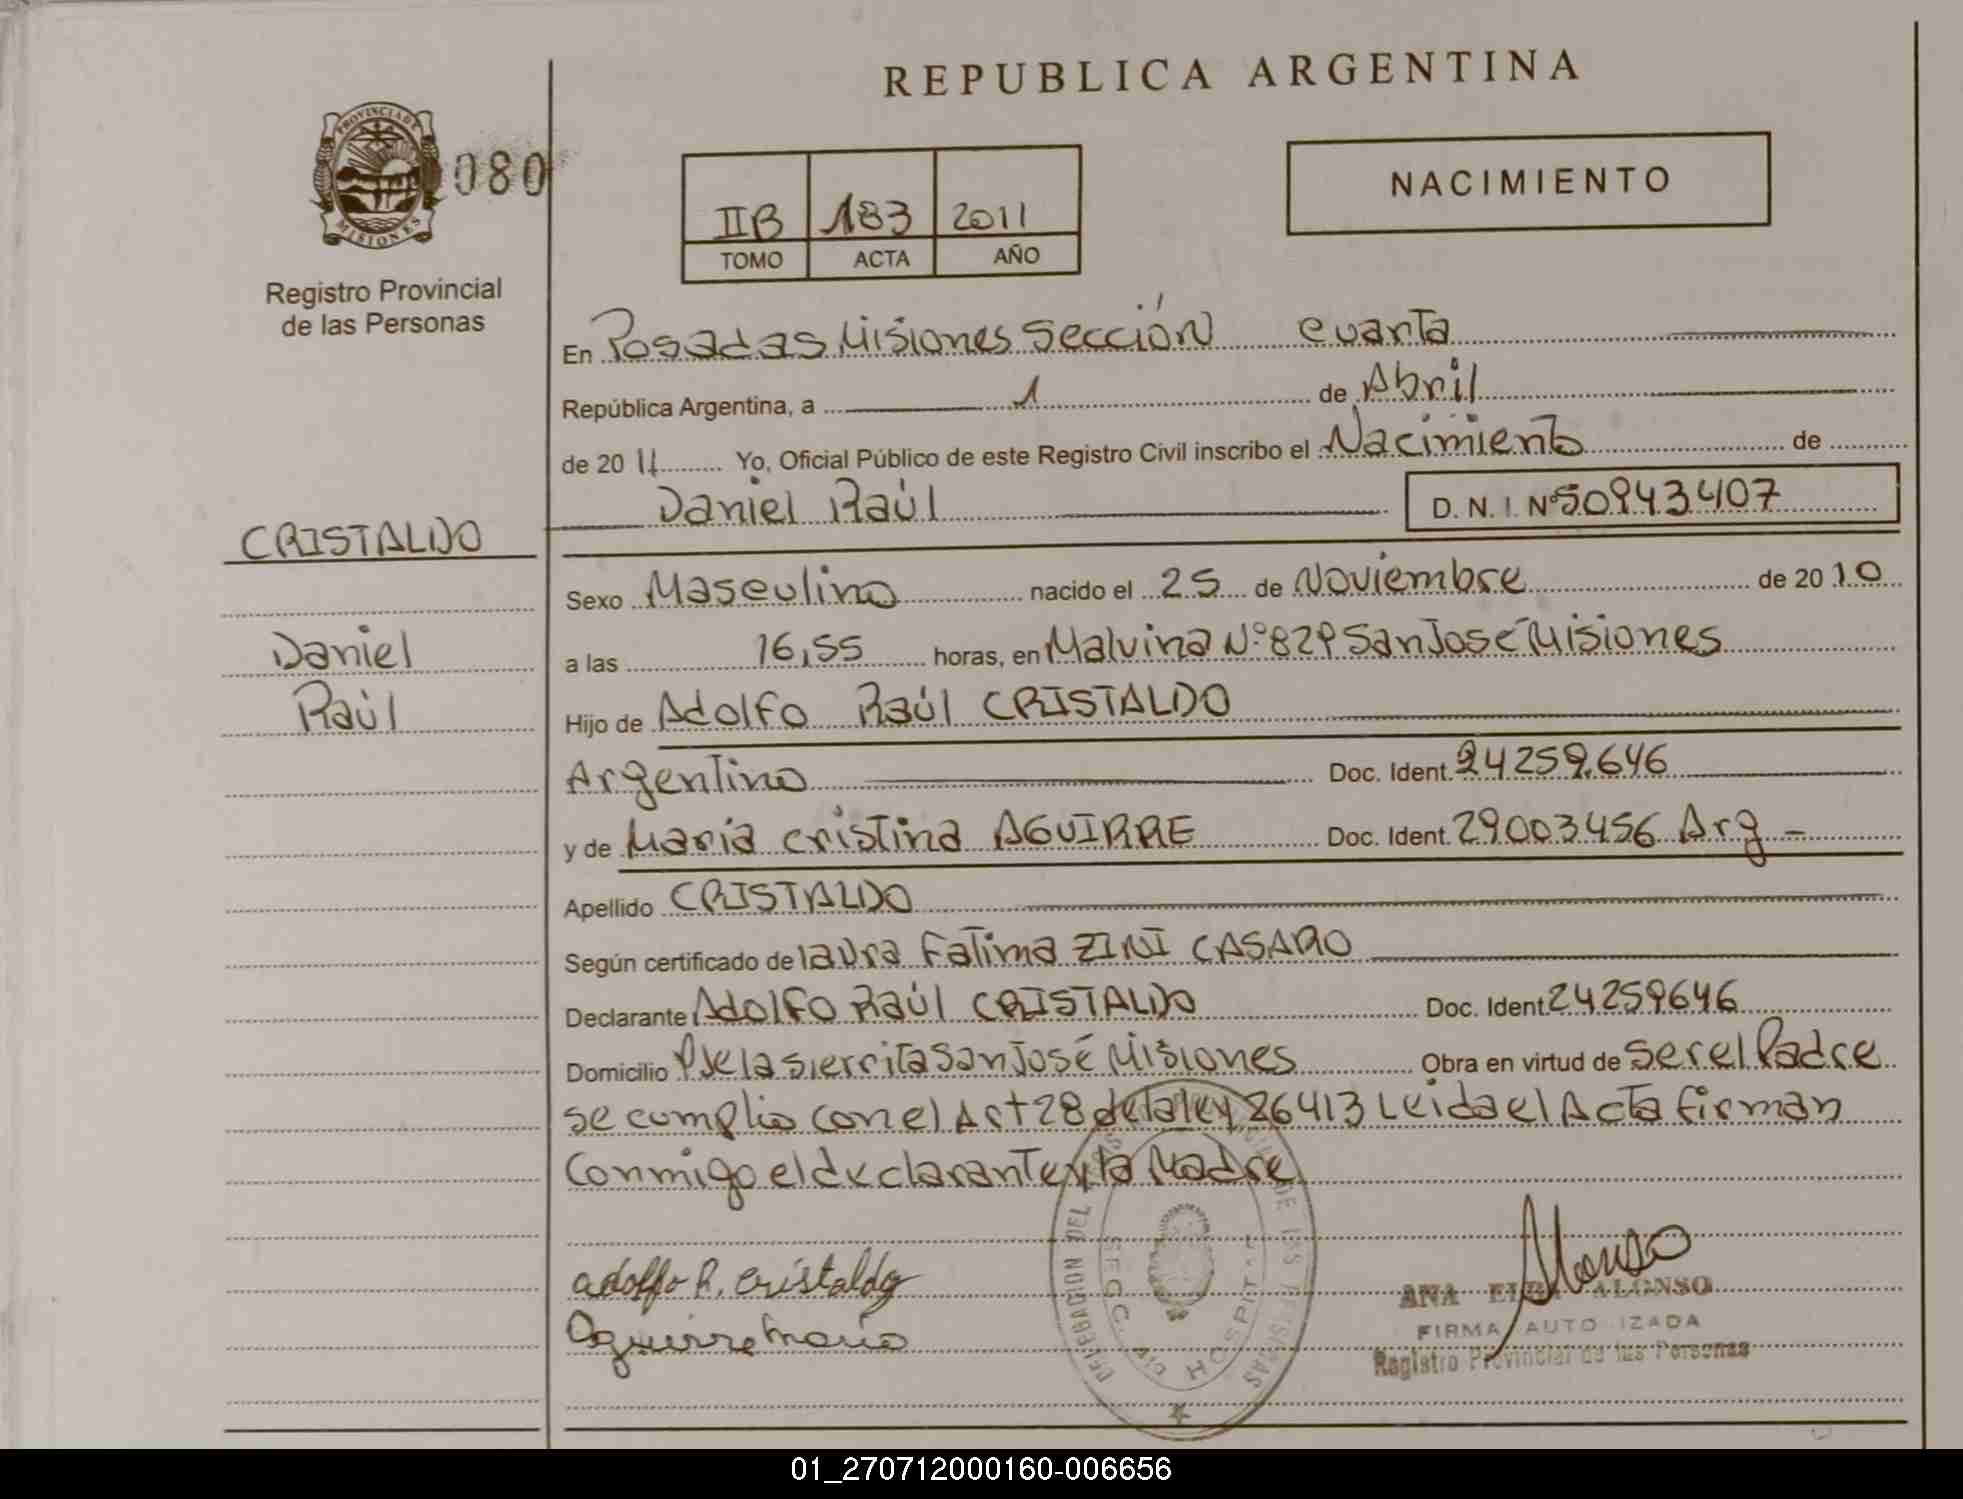 REPUBLICA ARGENTINA
PROVINCIA DE
MISIONES
080
Registro Provincial
de las Personas
IIB 183 2011
TOMO ACTA AÑO
NACIMIENTO
En Posadas Misiones Sección cuarta
República Argentina, a 1 de Abril
de 2011 Yo, Oficial Público de este Registro Civil inscribo el Nacimiento de
Daniel Raúl D. N. I. Nº 50943407
CRISTALDO
Daniel
Raúl
Sexo Masculino nacido el 25 de Noviembre de 2010
a las 16,55 horas, en Malvina Nº 829 San José Misiones
Hijo de Adolfo Raúl CRISTALDO
Argentino Doc. Ident. 24259.646
y de María Cristina AGUIRRE Doc. Ident. 29.003.456 Arg -
Apellido CRISTALDO
Según certificado de laura Fatima ZINI CASARO
Declarante Adolfo Raúl CRISTALDO Doc. Ident. 24259646
Domicilio la sierrita San José Misiones Obra en virtud de ser el Padre
se cumplio con el Art 28 de la ley 26413 Leida el Acta firman
Conmigo el declarante y la Madre
adolfo R. cristaldo
Aguirre maria
DELEGACION DEL DE LAS PERSONAS
SECC. HOSPITAL
Alonso
ANA ALONSO
FIRMA AUTORIZADA
Registro Provincial de las Personas
01_270712000160-006656